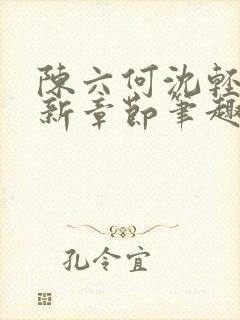 陳六何沈輕
新章節筆趣
孔令宜